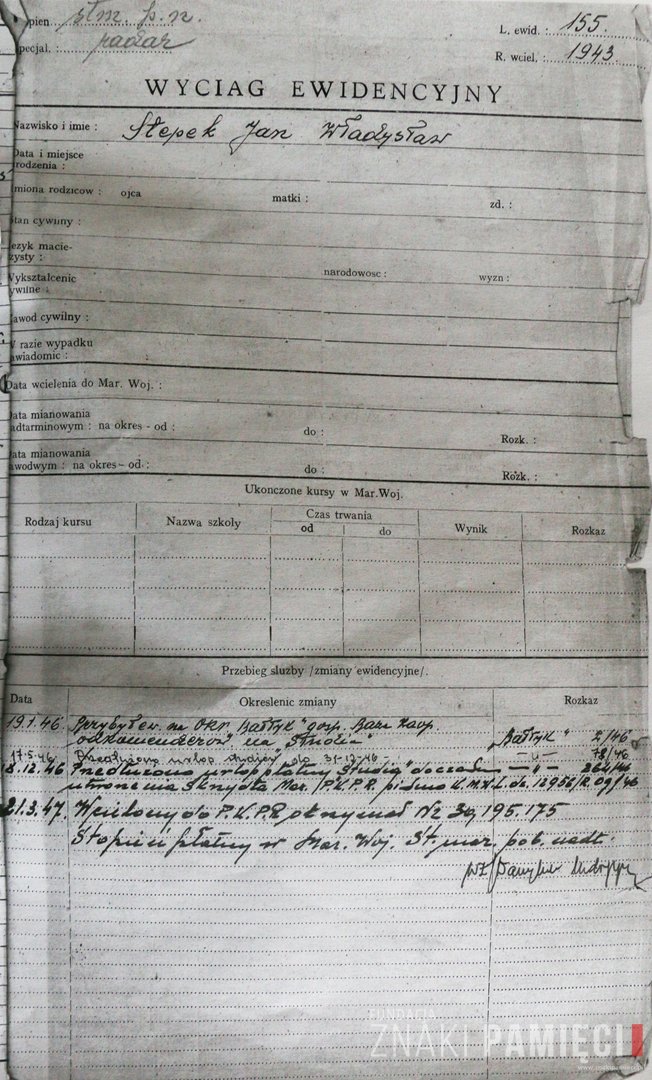 opien stm. p.n. L. ewid. : 155.
pecjal. : radar R. wciel. : 1943.
WYCIAG EWIDENCYJNY
Nazwisko i imie : Stepek Jan Władysław
Data i miejsce
rodzenia :
miona rodzicow : ojca matki : zd. :
tan cywilny :
ezyk macie-
zysty :
Wykształcenie narodowosc : wyzn :
ywilne :
awod cywilny :
W razie wypadku
awiadomic :
Data wcielenia do Mar. Woj. :
ata mianowania
adtarminowym : na okres - od : do : Rozk. :
ata mianowania
awodwym : na okres - od : do : Rozk. :
Ukonczone kursy w Mar.Woj.
Rodzaj kursu Nazwa szkoły Czas trwania Wynik Rozkaz
od do
Przebieg sluzby /zmiany ewidencyjne/.
Data Okreslenie zmiany Rozkaz
19.1.46 Przybył ew. na Okr. "Bałtyk" gosp. Baza
odkomenderow na "Studia" "Bałtyk" 2/46
17.5.46 urlop do 31-12-46 — " — 78/46
8.12.46 Przedłuzono urlop płatny "Studia" do czasu — " —
utworzenia Skrzydła Mar. P.K.P.R. pismo K.M.W. L.dz. 12956/R.Og/46
21.3.47. Wcielony do P.K.P.R otrzymał Nr 30,195.175
Stopień płatny w Mar. Woj. St. mar. pob. nadt.
wz/
FUNDACJA
ZNAKI PAMIĘCI
www.znakipamieci.pl